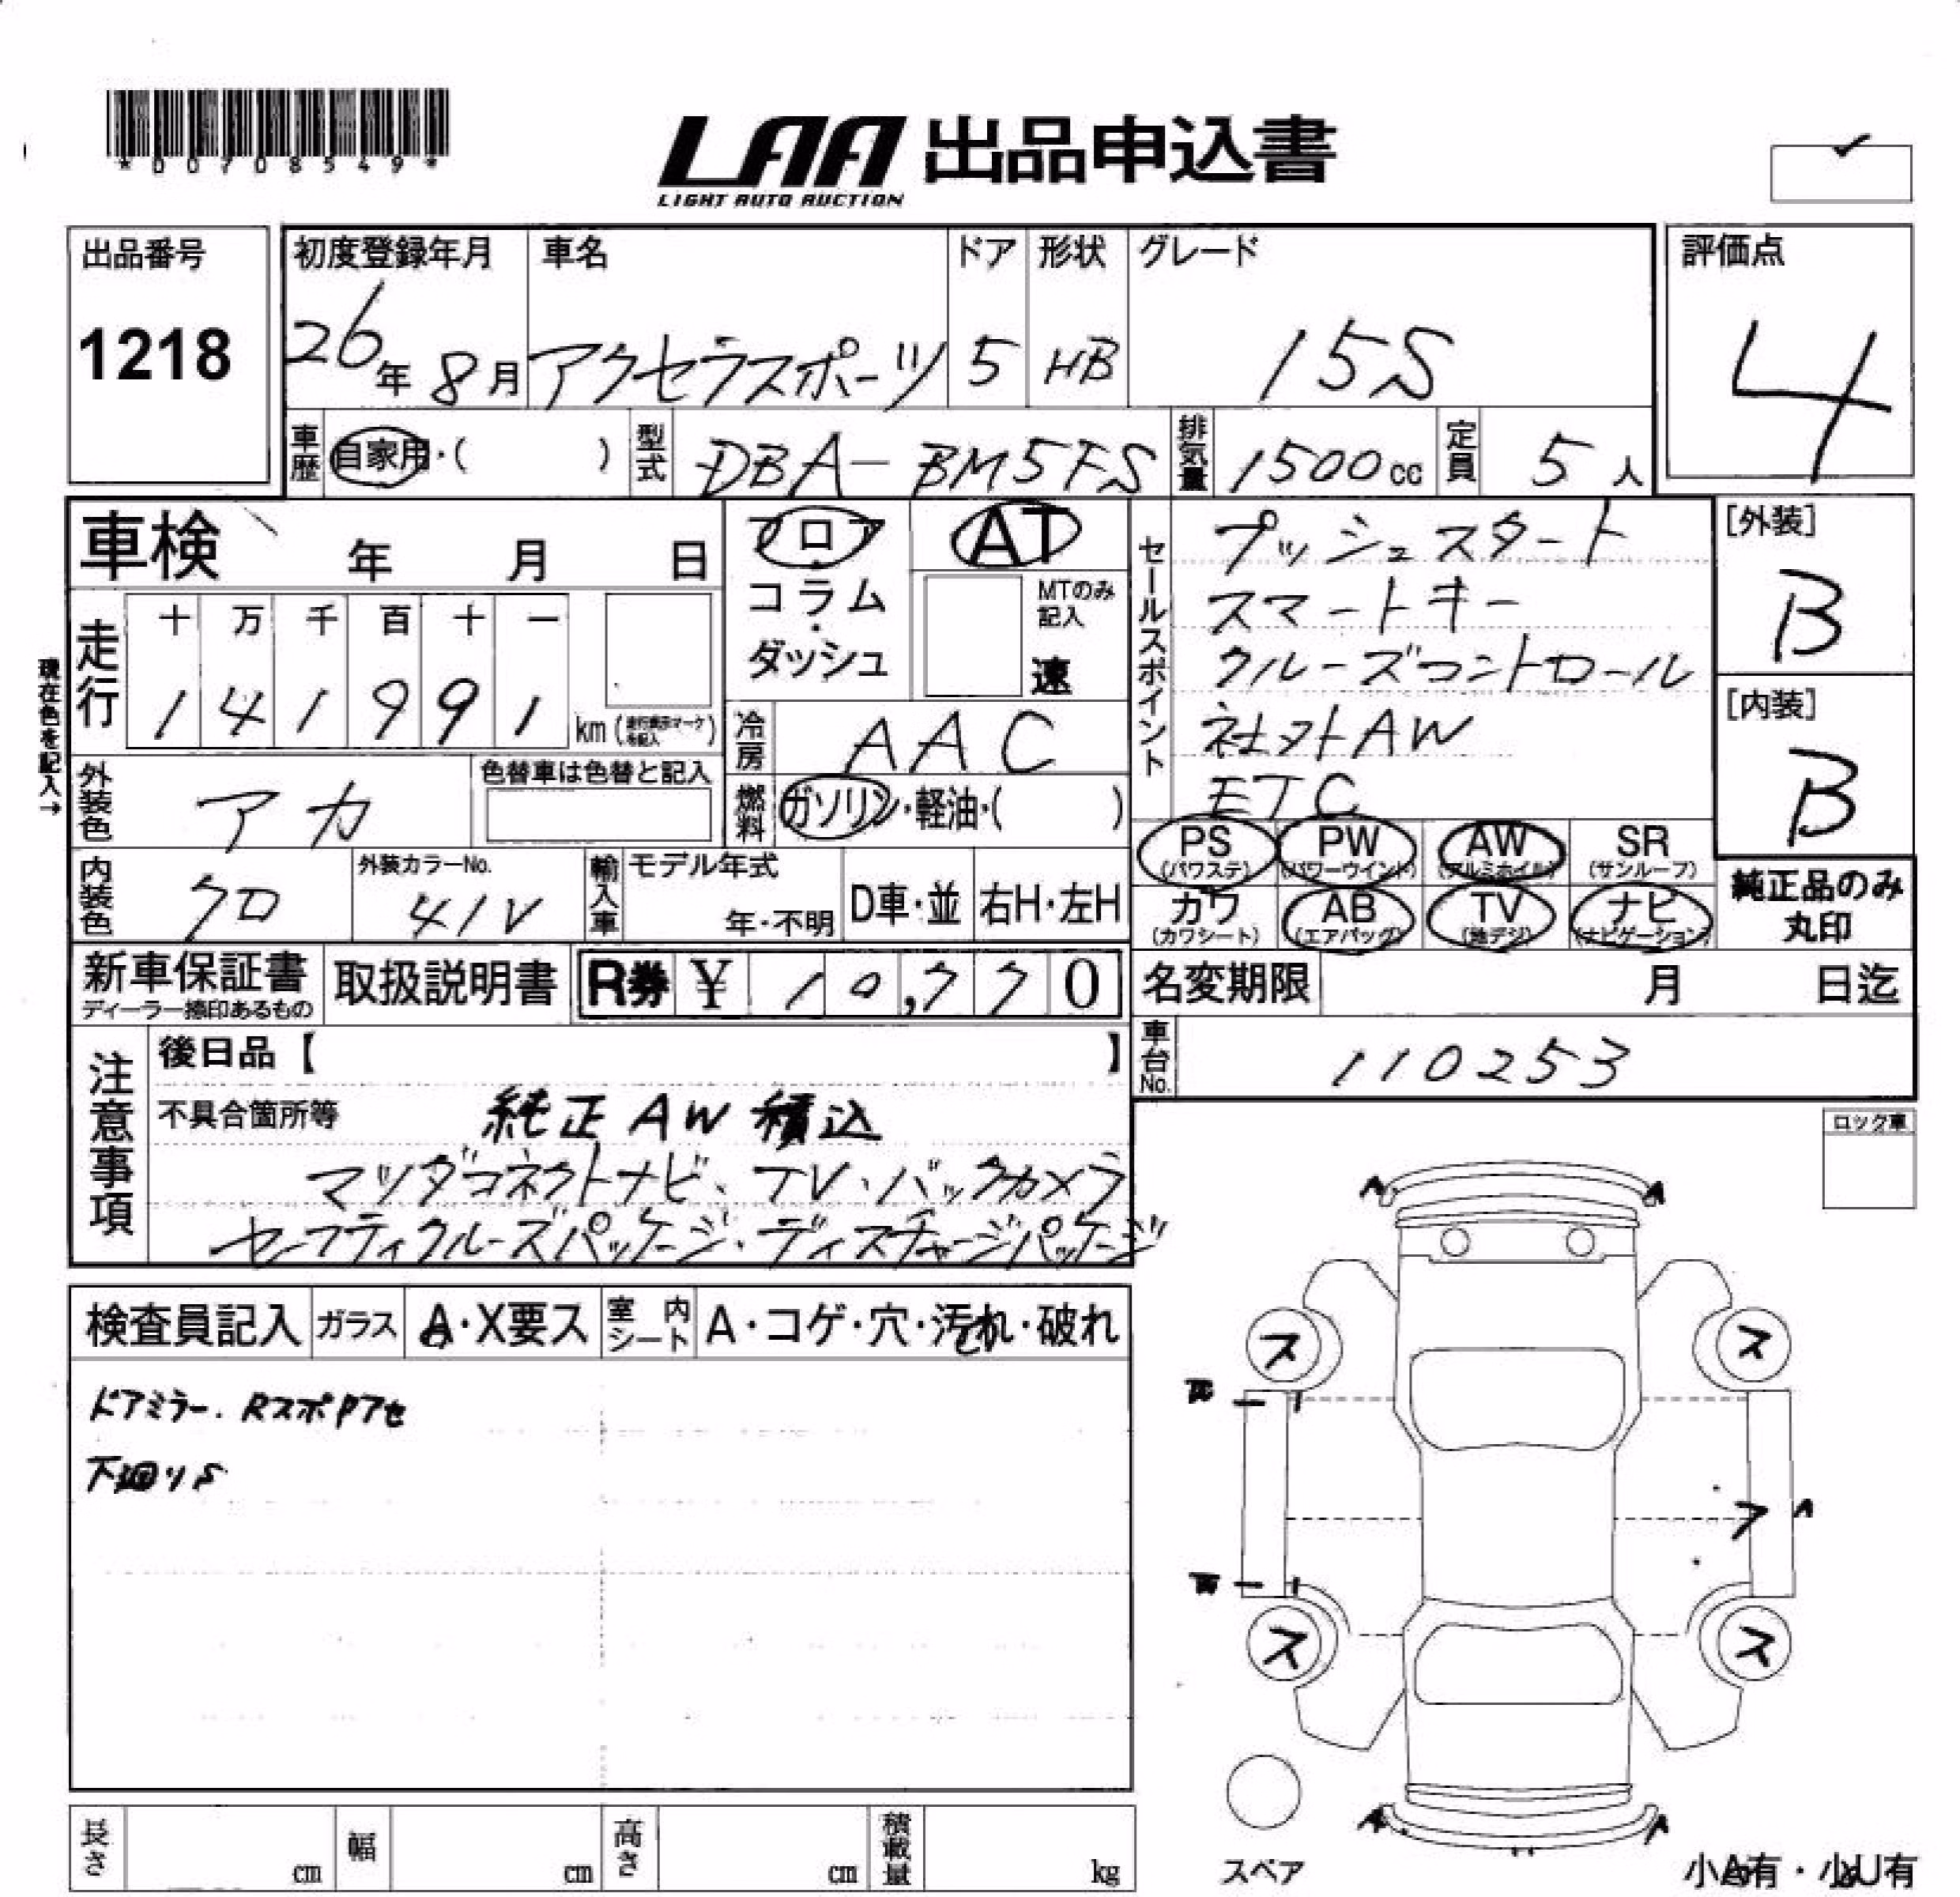 *00708549*
LAA 出品申込書
LIGHT AUTO AUCTION
出品番号
1218
初度登録年月
26年 8月
車名
アクセラスポーツ
ドア
5
形状
HB
グレード
15S
評価点
4
車歴 自家用・( )
型式 DBA-BM5FS
排気量 1500cc
定員 5人
車検 年 月 日
フロア・コラム・ダッシュ
AT
MTのみ記入
速
セールスポイント
プッシュスタート
スマートキー
クルーズコントロール
社外AW
ETC
[外装]
B
[内装]
B
現在色を記入→
走行
十 万 千 百 十 一
1 4 1 9 9 1 km
冷房 AAC
外装色 アカ
色替車は色替と記入
燃料 ガソリン・軽油・( )
内装色 クロ
外装カラーNo.
41V
輸入車
モデル年式
年・不明
D車・並
右H・左H
PS (パワステ)
PW (パワーウインド)
AW (アルミホイル)
SR (サンルーフ)
カワ (カワシート)
AB (エアバッグ)
TV (地デジ)
ナビ (ナビゲーション)
純正品のみ
丸印
新車保証書
取扱説明書
R券 ¥ 10,770
名変期限 月 日迄
車台No. 110253
注意事項
後日品【 】
不具合箇所等
純正AW積込
マツダコネクトナビ、TV、バックカメラ
セーフティクルーズパッケージ・ディスチャージパッケージ
ロック車
検査員記入
ガラス A・X要ス
室内シート A・コゲ・穴・汚れ・破れ
ドアミラー.
下廻りS
A A
ス ス
フ A
ス ス
A A
スペア
長さ cm
幅 cm
高さ cm
積載量 kg
小A有・小U有